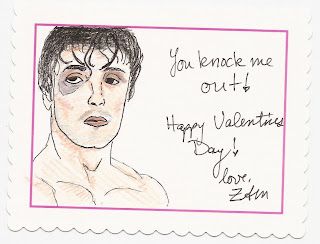 You knock me
out!
Happy Valentines
Day!
love,